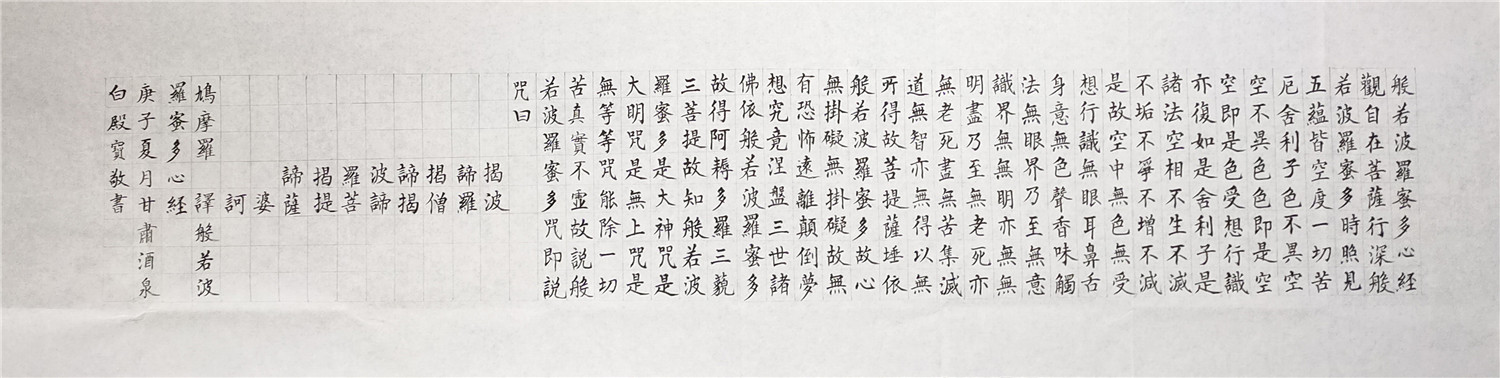 般若波羅蜜多心經
觀自在菩薩行深般
若波羅蜜多時照見
五蘊皆空度一切苦
厄舍利子色不異空
空不異色色即是空
空即是色受想行識
亦復如是舍利子是
諸法空相不生不滅
不垢不爭不增不減
是故空中無色無受
想行識無眼耳鼻舌
身意無色聲香味觸
法無眼界乃至無意
識界無無明亦無無
明盡乃至無老死亦
無老死盡無苦集滅
道無智亦無得以無
所得故菩提薩埵依
般若波羅蜜多故心
無掛礙無掛礙故無
有恐怖遠離顛倒夢
想究竟涅盤三世諸
佛依般若波羅蜜多
故得阿耨多羅三藐
三菩提故知般若波
羅蜜多是大神咒是
大明咒是無上咒是
無等等咒能除一切
苦真實不虛故說般
若波羅蜜多咒即說
咒曰
揭諦揭諦波羅揭諦
波羅僧揭諦菩提薩婆訶
鳩摩羅 譯般若波
羅蜜多心經
庚子夏月甘肅酒泉
白殿寶敬書